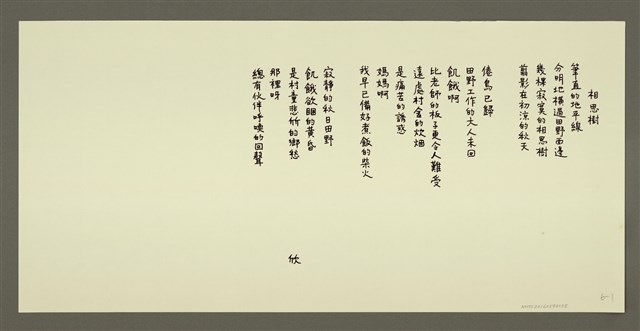 相思樹
筆直的地平線
分明地橫過田野西邊
幾棵寂寞的相思樹
剪影在初涼的秋天
倦鳥已歸
田野工作的大人未回
飢餓啊
比老師的板子更令人難受
遠處村舍的炊烟
是痛苦的誘惑
媽媽啊
我早已備好煮飯的柴火
寂靜的秋日田野
飢餓欲睏的黃昏
是村童悲所的鄉愁
那裡呀
總有伙伴呼喚的回聲
欣